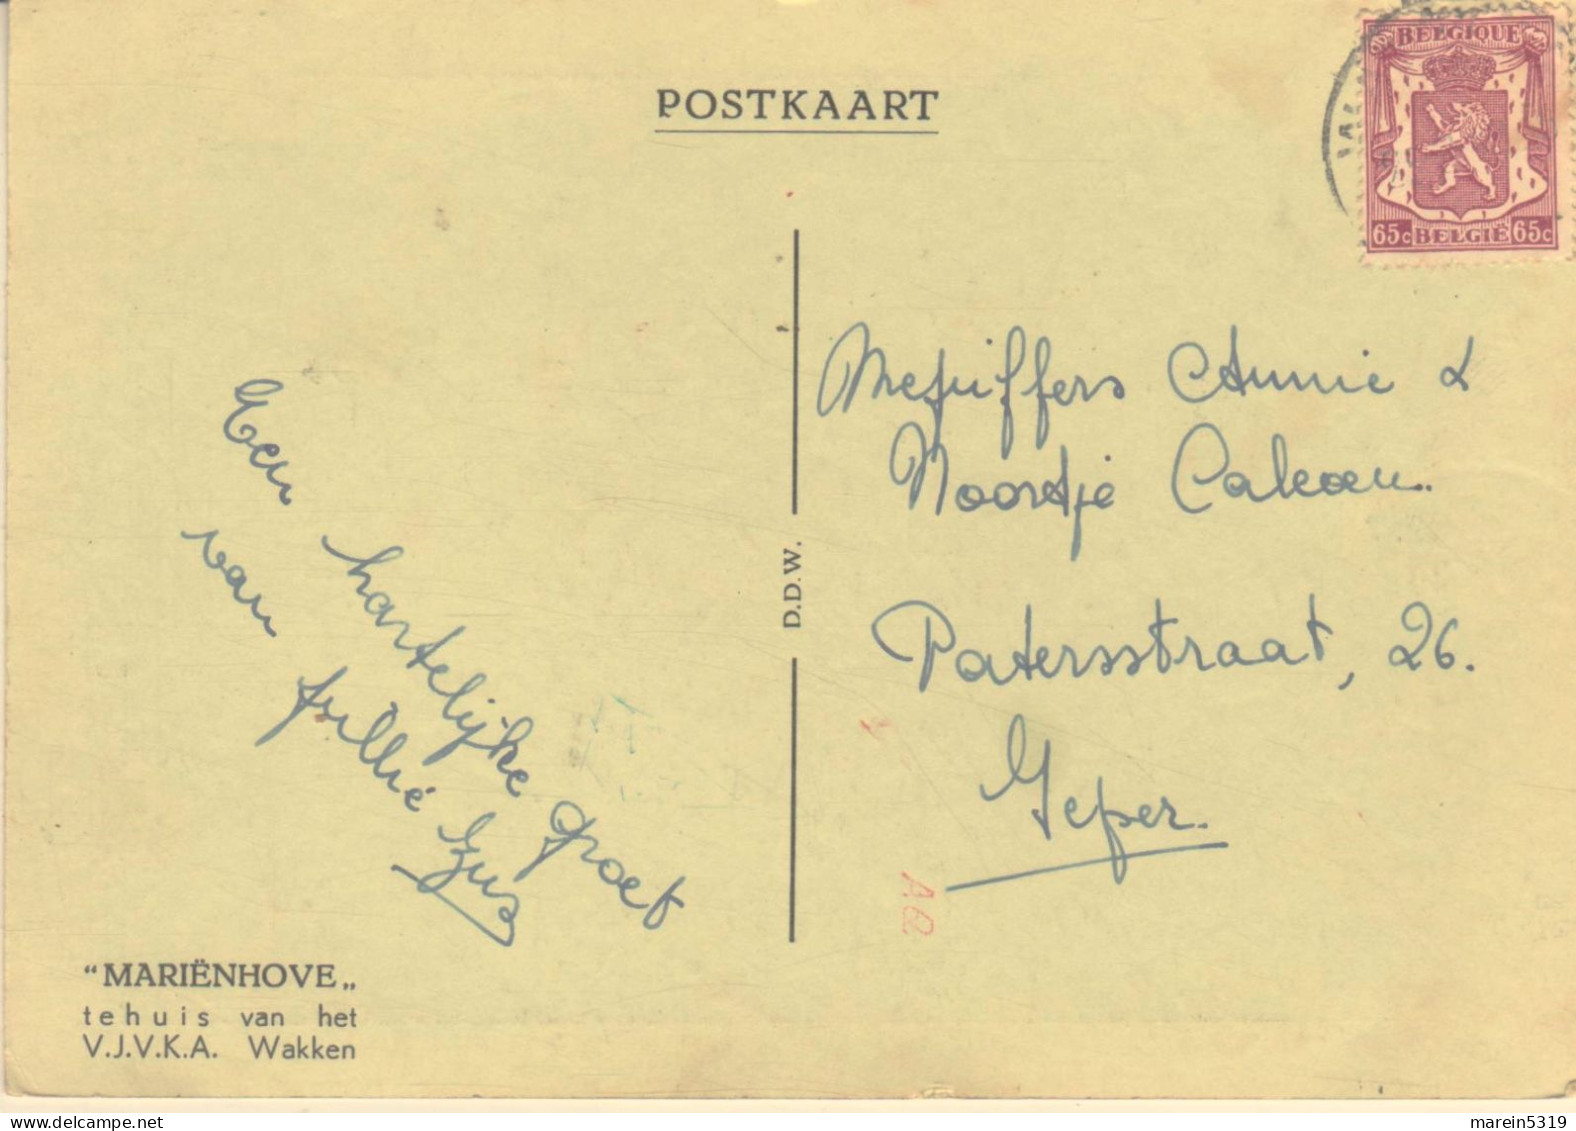 POSTKAART
BELGIQUE
65c BELGIË 65c
Een hartelijke groet
van
Zus
D.D.W.
Mejuffers Annie &
Noordje
Patersstraat, 26.
Ieper.
AQ
"MARIËNHOVE„
tehuis van het
V.J.V.K.A. Wakken
marein5319